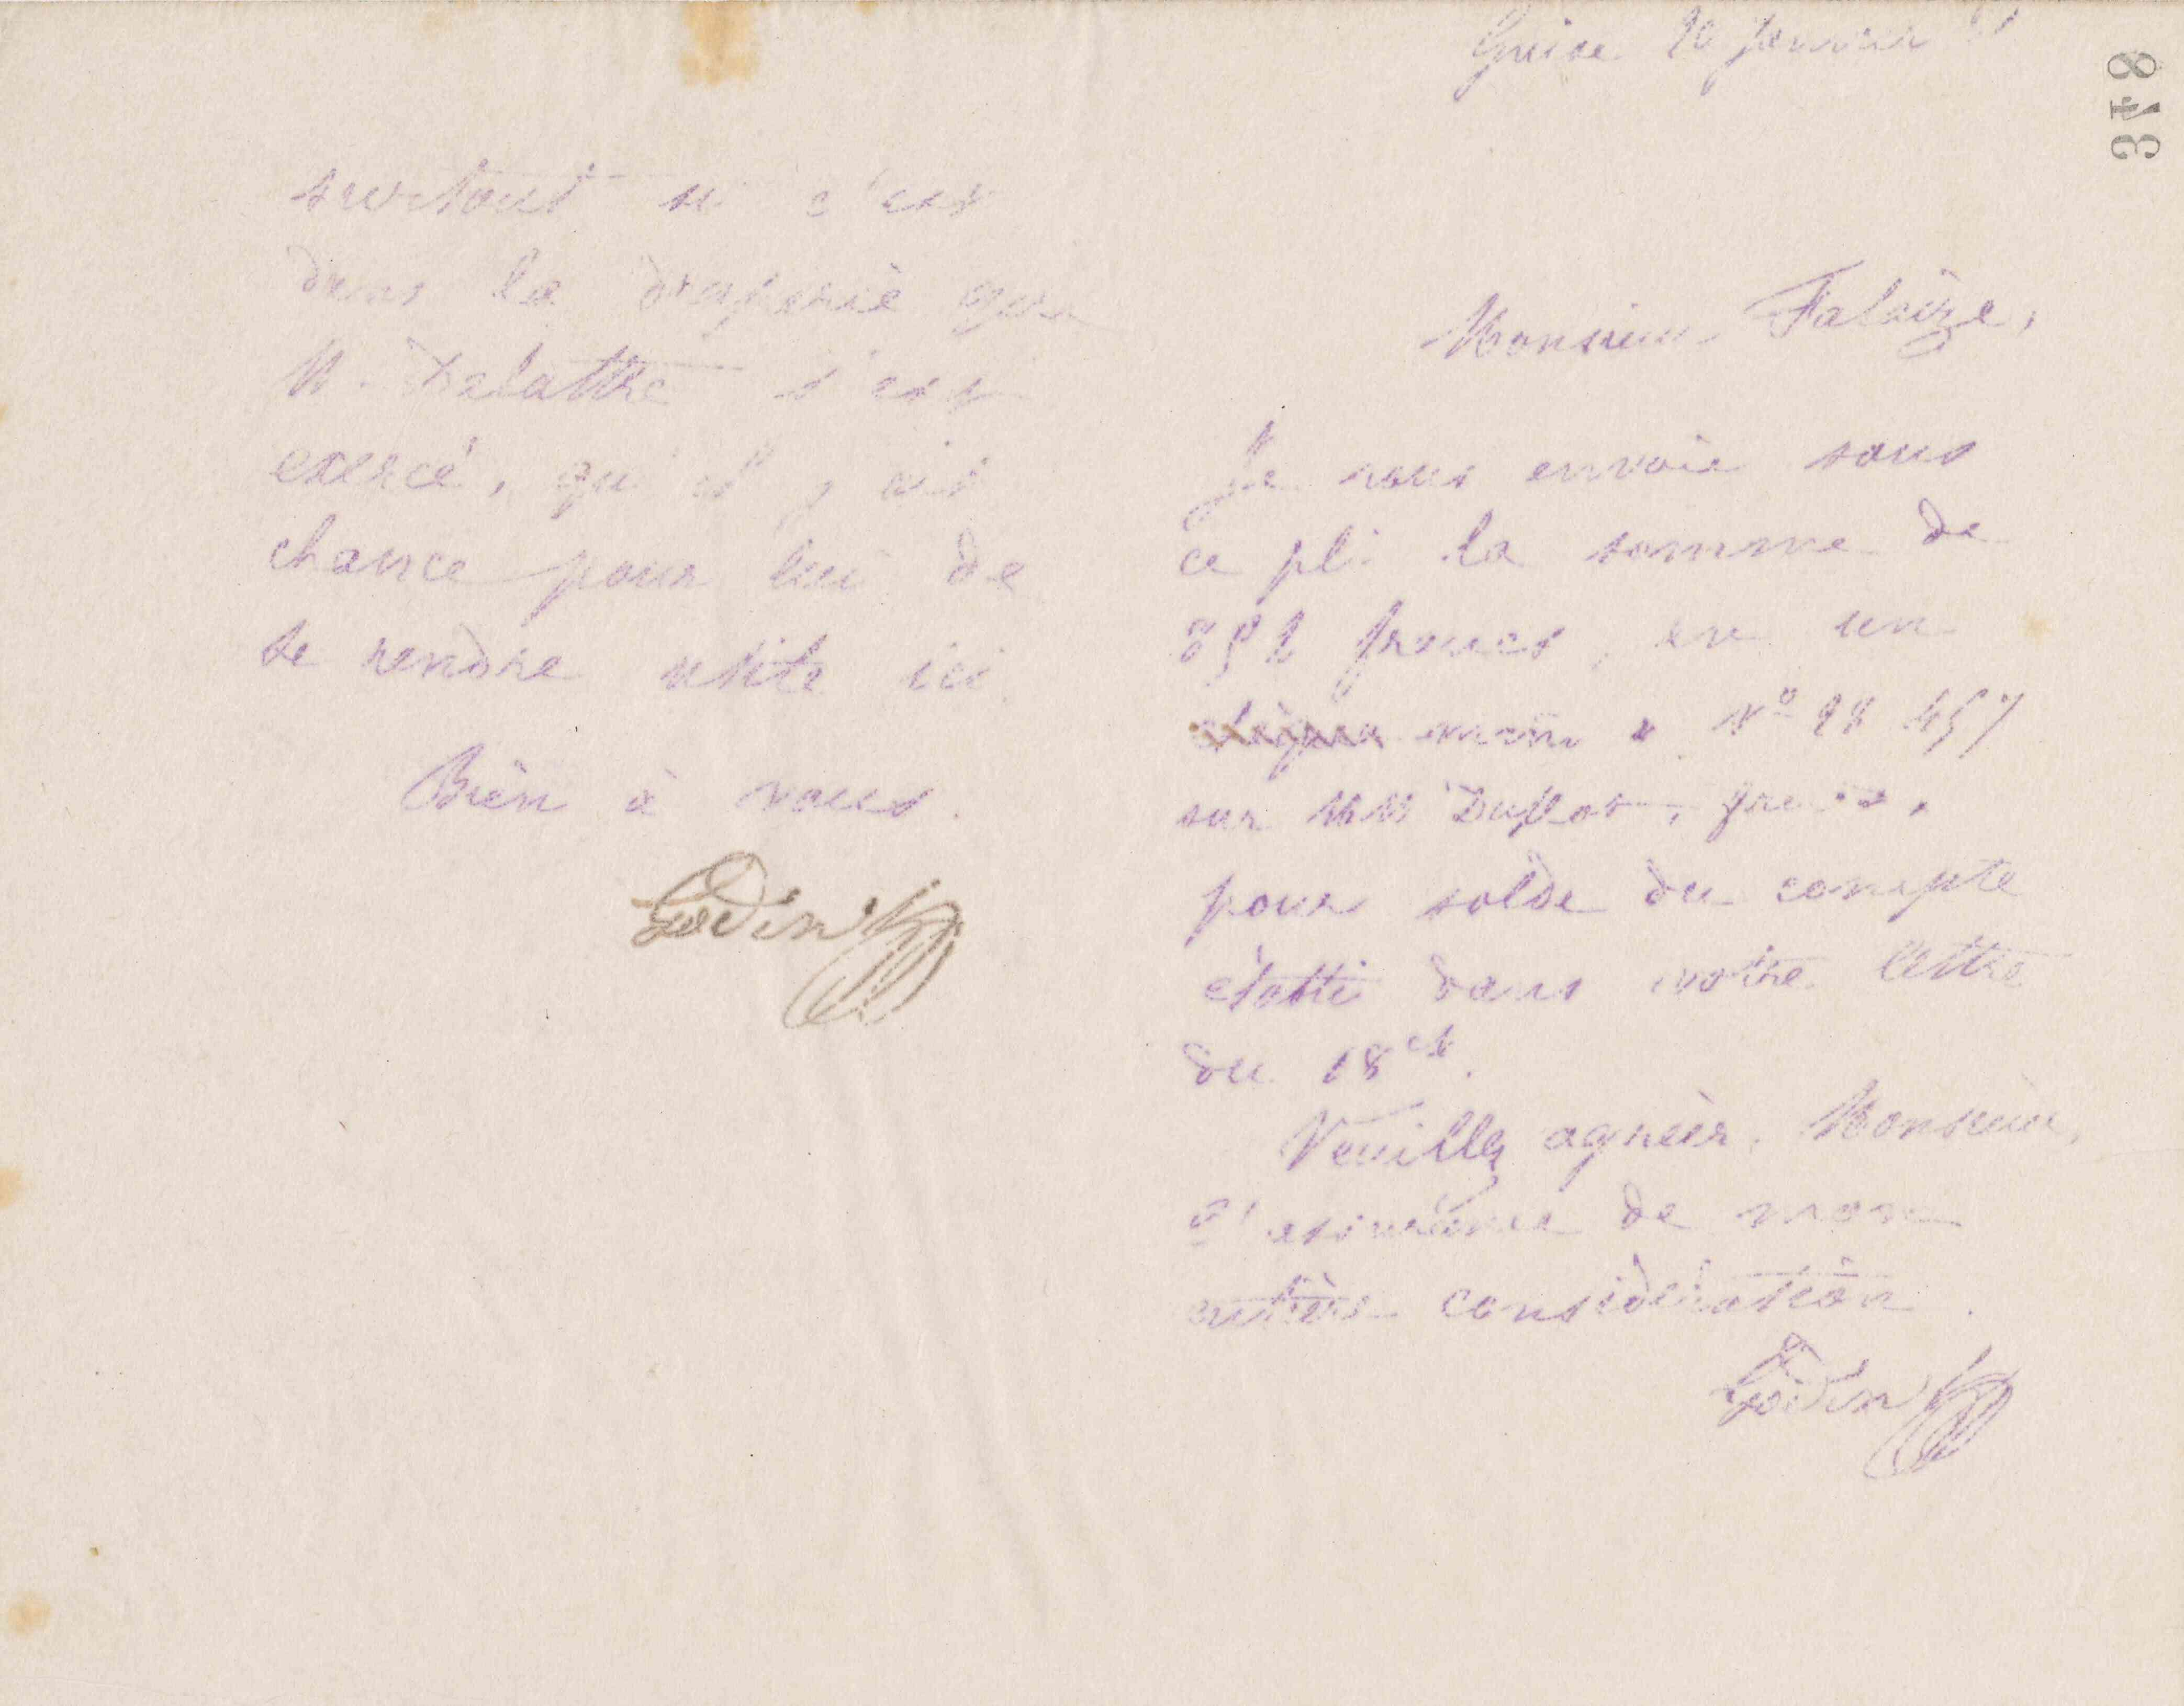 surtout si c'est
dans la draperie que
M. Delattre s'est
exercé, qu'il y ait
chance pour lui de
se rendre utile ici.
Bien à vous.
Godin
378
Guise 20 Janvier
Monsieur Falaize,
Je vous envoie sous
ce pli la somme de
francs, en un
N°
sur MM Duflos,
pour solde du compte
établi dans votre lettre
du 18 ct.
Veuillez agréer, Monsieur,
l'assurance de mon
entière considération.
Godin